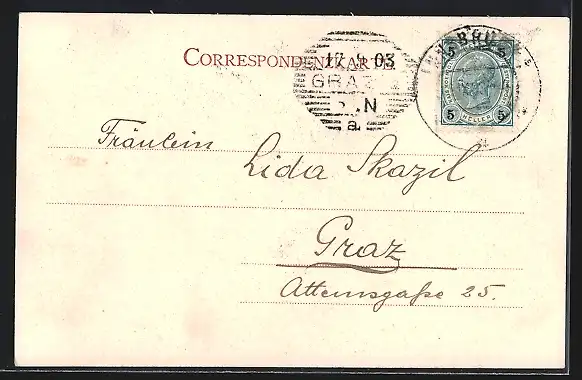 CORRESPONDENZKARTE
17.4.03
GRAZ
N
a
5 5
5 HELLER 5
Fräulein Lida Skazil
Graz
Attemsgaße 25.